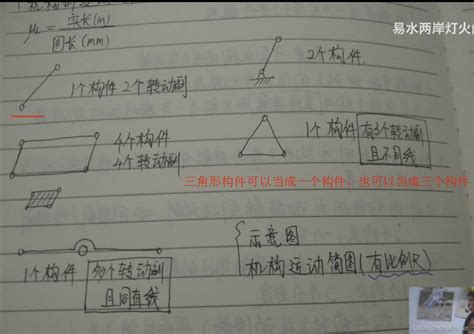 易水两岸灯火
μL = 实长(m)
图长(mm)
1个构件 2个转动副
2个构件
4个构件
4个转动副
1个构件 有3个转动副
且不同线
三角形构件可以当成一个构件，也可以当成三个构件
1个构件
3个转动副
且同直线
示意图
机构运动简图(有比例尺)